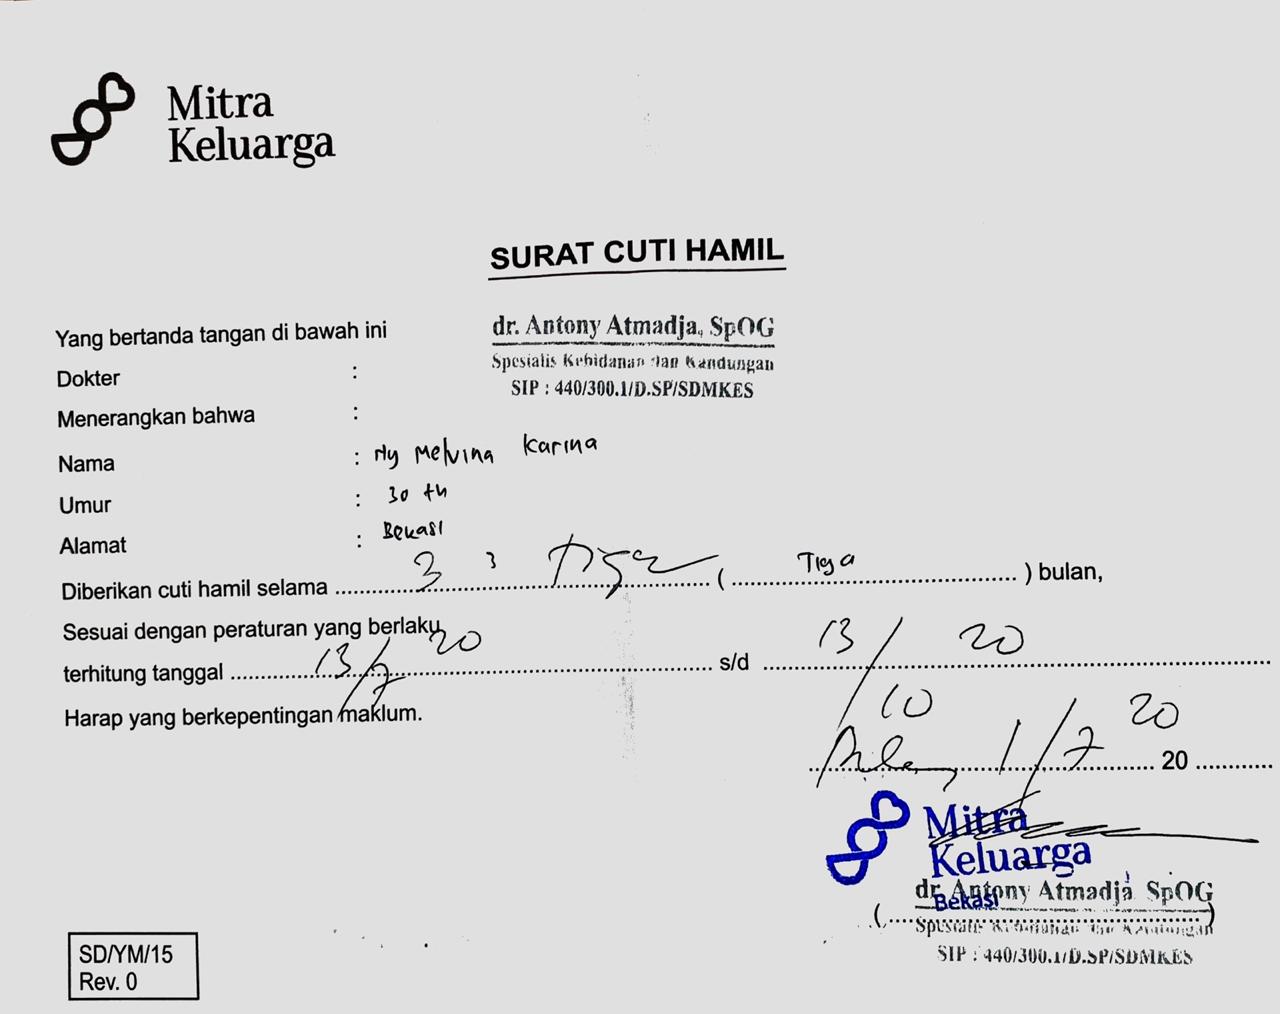 Mitra
Keluarga
SURAT CUTI HAMIL
Yang bertanda tangan di bawah ini
dr. Antony Atmadja, SpOG
Spesialis Kebidanan dan Kandungan
SIP : 440/300.1/D.SP/SDMKES
Dokter :
Menerangkan bahwa :
Nama : Ny Melvina Karina
Umur : 30 th
Alamat : Bekasi
Diberikan cuti hamil selama 3 3 Tiga ( Tiga ) bulan,
Sesuai dengan peraturan yang berlaku
terhitung tanggal 13/7 20 s/d 13/10 20
Harap yang berkepentingan maklum.
1/7 20 20
Mitra
Keluarga
Bekasi
dr. Antony Atmadja SpOG
(..........)
Spesialis Kebidanan dan Kandungan
SIP : 440/300.1/D.SP/SDMKES
SD/YM/15
Rev. 0